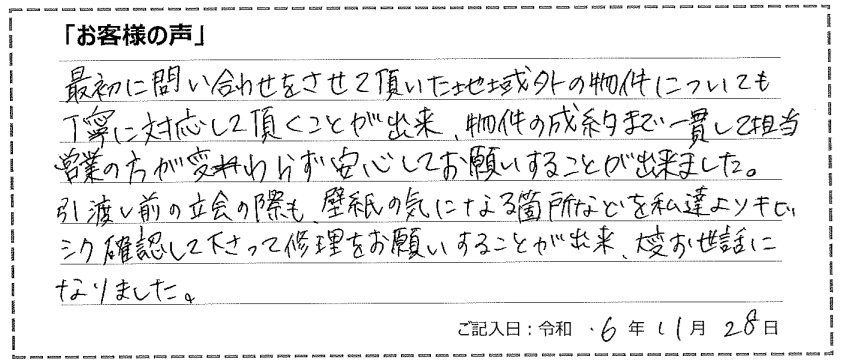 「お客様の声」
最初に問い合わせをさせて頂いた地域外の物件についても
丁寧に対応して頂くことが出来、物件の成約まで一貫して担当
営業の方が変わらず安心してお願いすることが出来ました。
引渡し前の立会の際も、壁紙の気になる箇所などを私達よりキビ
シク確認して下さって修理をお願いすることが出来、大変お世話に
なりました。
ご記入日:令和 6年 11月 28日